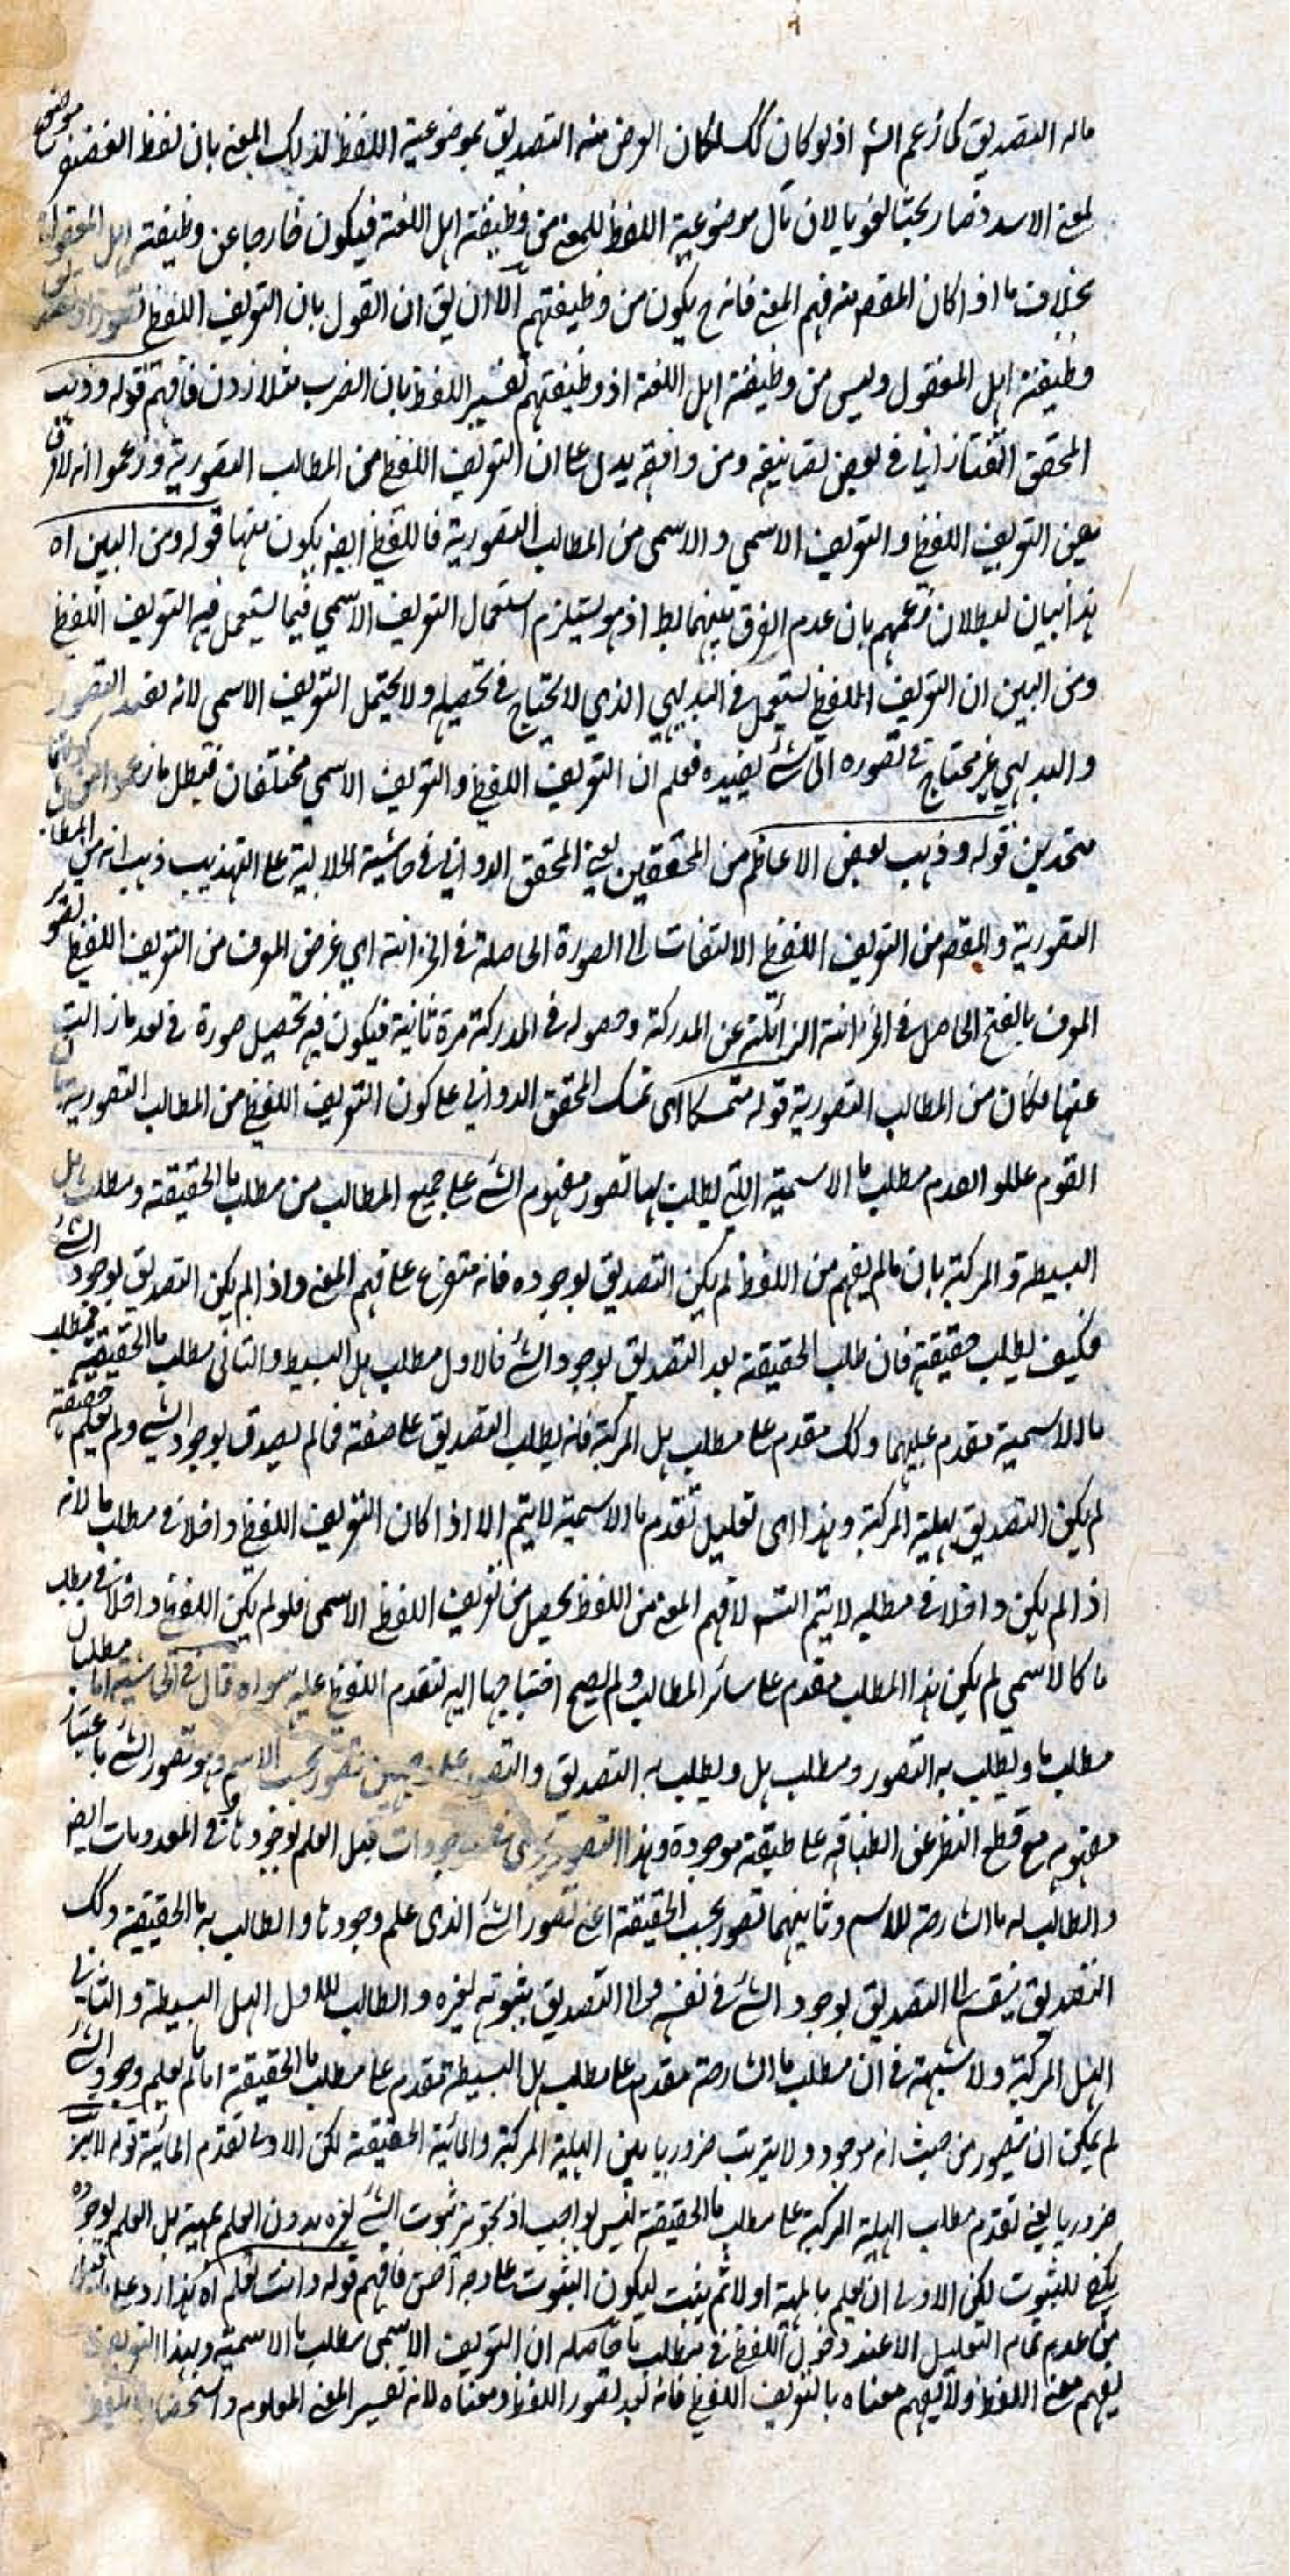 ماله التصديق كما زعم الش اذ لو كان كك لكان الغرض منه التصديق بموضوعية اللفظ لذلك المعنى بان لفظ الغضنفر موضوع
لمعنى الاسد فصار بحثا لغويا لان مآل موضوعية اللفظ للمعنى من وظيفة اهل اللغة فيكون خارجا عن وظيفة اهل المعقول
بخلاف ما اذا كان المقصم منه فهم المعنى فانه ح يكون من وظيفتهم الا ان يق ان القول بان التعريف اللفظي
وظيفة اهل المعقول وليس من وظيفة اهل اللغة اذ وظيفتهم تفسير اللفظ بان الضرب مثلا زدن فافهم قوله وذهب
المحقق التفتازاني في بعض تصانيفه ومن وافقه يدل على ان التعريف اللفظي من المطالب التصورية وزعموا انه لا فرق
بين التعريف اللفظي والتعريف الاسمي والاسمى من المطالب التصورية فاللفظي ايض يكون منها قوله ومن البين اه
هذا بيان لبطلان زعمهم بان عدم الفرق بينهما بط اذ هو يستلزم استعمال التعريف الاسمي فيما يستعمل فيه التعريف اللفظي
ومن البين ان التعريف اللفظي يستعمل في البديهي الذي لا يحتاج في تحصيله ولا يحتمل التعريف الاسمى لانه يفيد التصور
والبديهي غير محتاج في تصوره الى شئ يفيده فعلم ان التعريف اللفظي والتعريف الاسمي مختلفان فبطل ما زعموا من كونهما
متحدين قوله وذهب بعض الاعاظم من المحققين يعني المحقق الدواني في حاشية الجلالية على التهذيب ذهب انه من المطالب
التصورية والمقصم من التعريف اللفظي الالتفات الى الصورة الحاصلة في الخزانة اي غرض المعرف من التعريف اللفظي تصور
المعرف بالفتح الحاصل في الخزانة الزائلة عن المدركة وحصوله في المدركة مرة ثانية فيكون فيه تحصيل صورة في بعد ما زالت
عنها فكان من المطالب التصورية قوله متمسكا اى تمسك المحقق الدواني على كون التعريف اللفظي من المطالب التصورية بان
القوم عللوا تقدم مطلب ما الاسمية التي يطلب بها تصور مفهوم الشئ على جميع المطالب من مطلب ما الحقيقة ومطلب هل
البسيطة والمركبة بان ما لم يفهم من اللفظ لم يكن التصديق بوجوده فانه متفرع على فهم المعنى واذا لم يكن التصديق بوجود الشئ
فكيف يطلب حقيقته فان طلب الحقيقة بعد التصديق بوجود الشئ فالاول مطلب هل البسيط والثانى مطلب ما الحقيقية فمطلب
ما الاسمية مقدم عليهما وكك مقدم على مطلب هل المركبة فانه يطلب التصديق على صفة فما لم يصدق بوجود الشئ ولم يعلم حقيقته
لم يكن التصديق بهلية المركبة وهذا اى تعليل تقدم ما الاسمية لا يتم الا اذا كان التعريف اللفظي داخلا في مطلب ما لانه
اذا لم يكن داخلا في مطلبه لا يتم التم لان فهم المعنى من اللفظ يحصل من تعريف اللفظ الاسمى فلو لم يكن اللفظي داخلا في مطلب
ما كالاسمي لم يكن هذا المطلب مقدم على سائر المطالب ولم يصح احتياجها اليه لتقدم اللفظي عليه سواه قال في الحاشية اما مطلبان
مطلب ما ويطلب به التصور ومطلب هل ويطلب به التصديق والتصور على وجهين تصور بحسب الاسم وهو تصور الشئ باعتبار
مفهومه مع قطع النظر عن انطباقه على طبيعة موجودة وهذا التصور يجرى في الموجودات قبل العلم بوجودها وفى المعدومات ايض
والطالب له ما الشارحة للاسم وثانيهما تصور بحسب الحقيقة اعني تصور الشئ الذى علم وجودها والطالب به ما الحقيقية وكك
التصديق ينقسم الى التصديق بوجود الشئ في نفسه والى التصديق بثبوته لغيره والطالب للاول الهل البسيطة والثاني
الهل المركبة ولا شبهة في ان مطلب ما الشارحة مقدم على مطلب هل البسيطة مقدم على مطلب ما الحقيقة اما لم يعلم وجود الشئ
لم يمكن ان يتصور من حيث انه موجود ولا يترتب ضروريا بين الهلية المركبة والمائية الحقيقة لكن الاولى تقدم المائية قوله لا يترتب
ضروريا يعني تقدم مطلب الهلية المركبة على مطلب ما الحقيقة ليس بواجب اذ تجويز ثبوت الشئ لغيره بدون العلم بمهيته بل العلم بوجوده
يكفي للثبوت لكن الاولى ان يعلم بالمهية اولا ثم يثبت ليكون الثبوت على وجه احسن فافهم قوله وانت تعلم اه هذا رد على
من عدم تمام التعليل الا عند دخول اللفظي في مطلب ما حاصله ان التعريف الاسمى مطلب ما الاسمية وبهذا التعريف
يفهم معنى اللفظ ولا يفهم معناه بالتعريف اللفظي فانه بعد تصور اللفظ ومعناه لانه تفسير المعنى المعلوم واستحضار